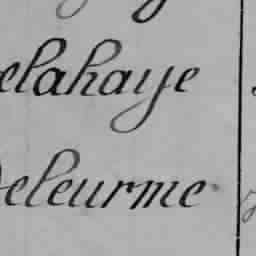 elahaye
eleurme